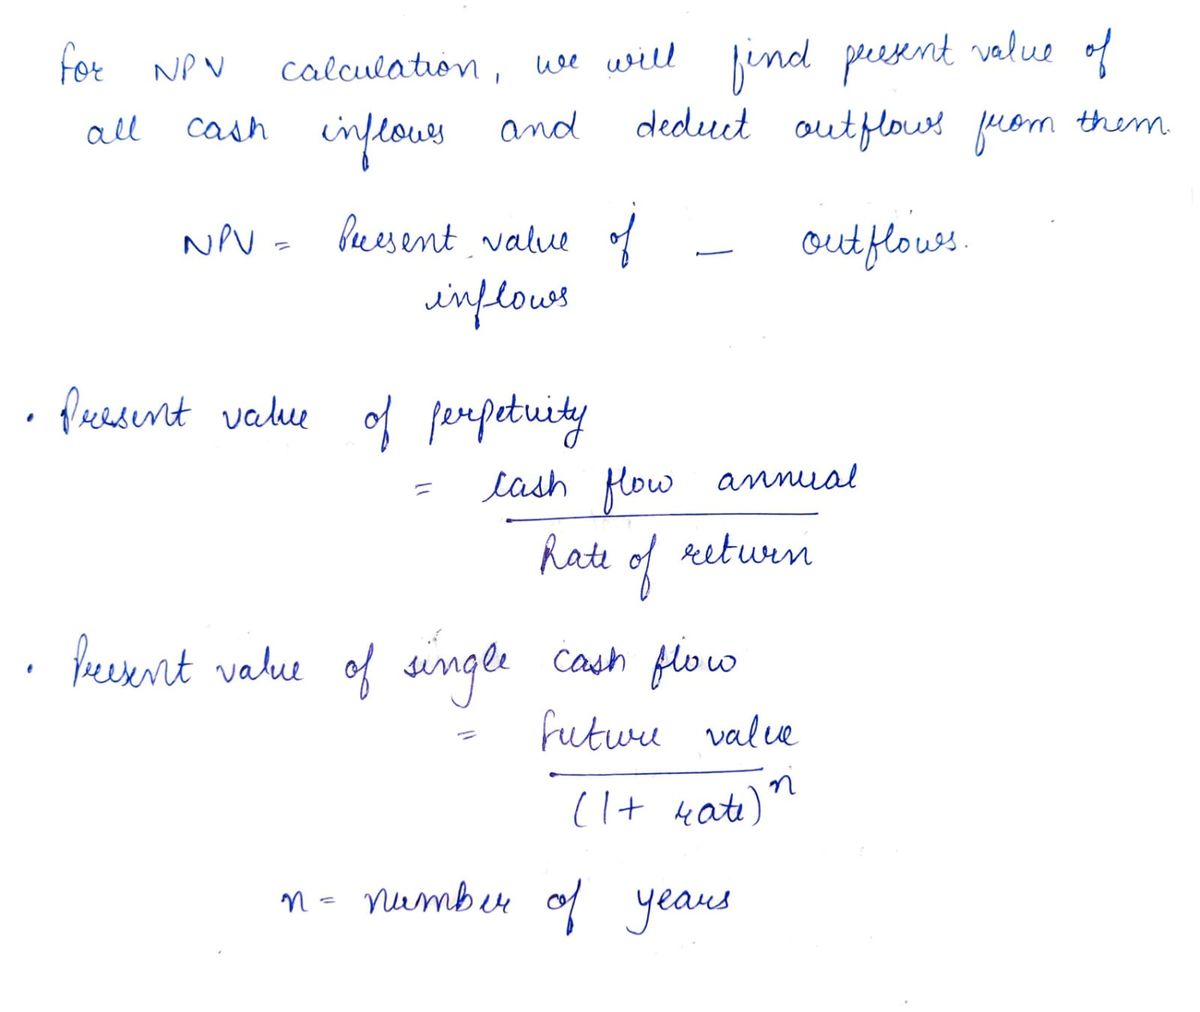 for NPV calculation, we will find present value of
all cash inflows and deduct outflows from them.
NPV = Present value of – outflows.
inflows
• Present value of perpetuity
= cash flow annual
Rate of return
• Present value of single cash flow
= future value
(1+ rate)^n
n = number of years